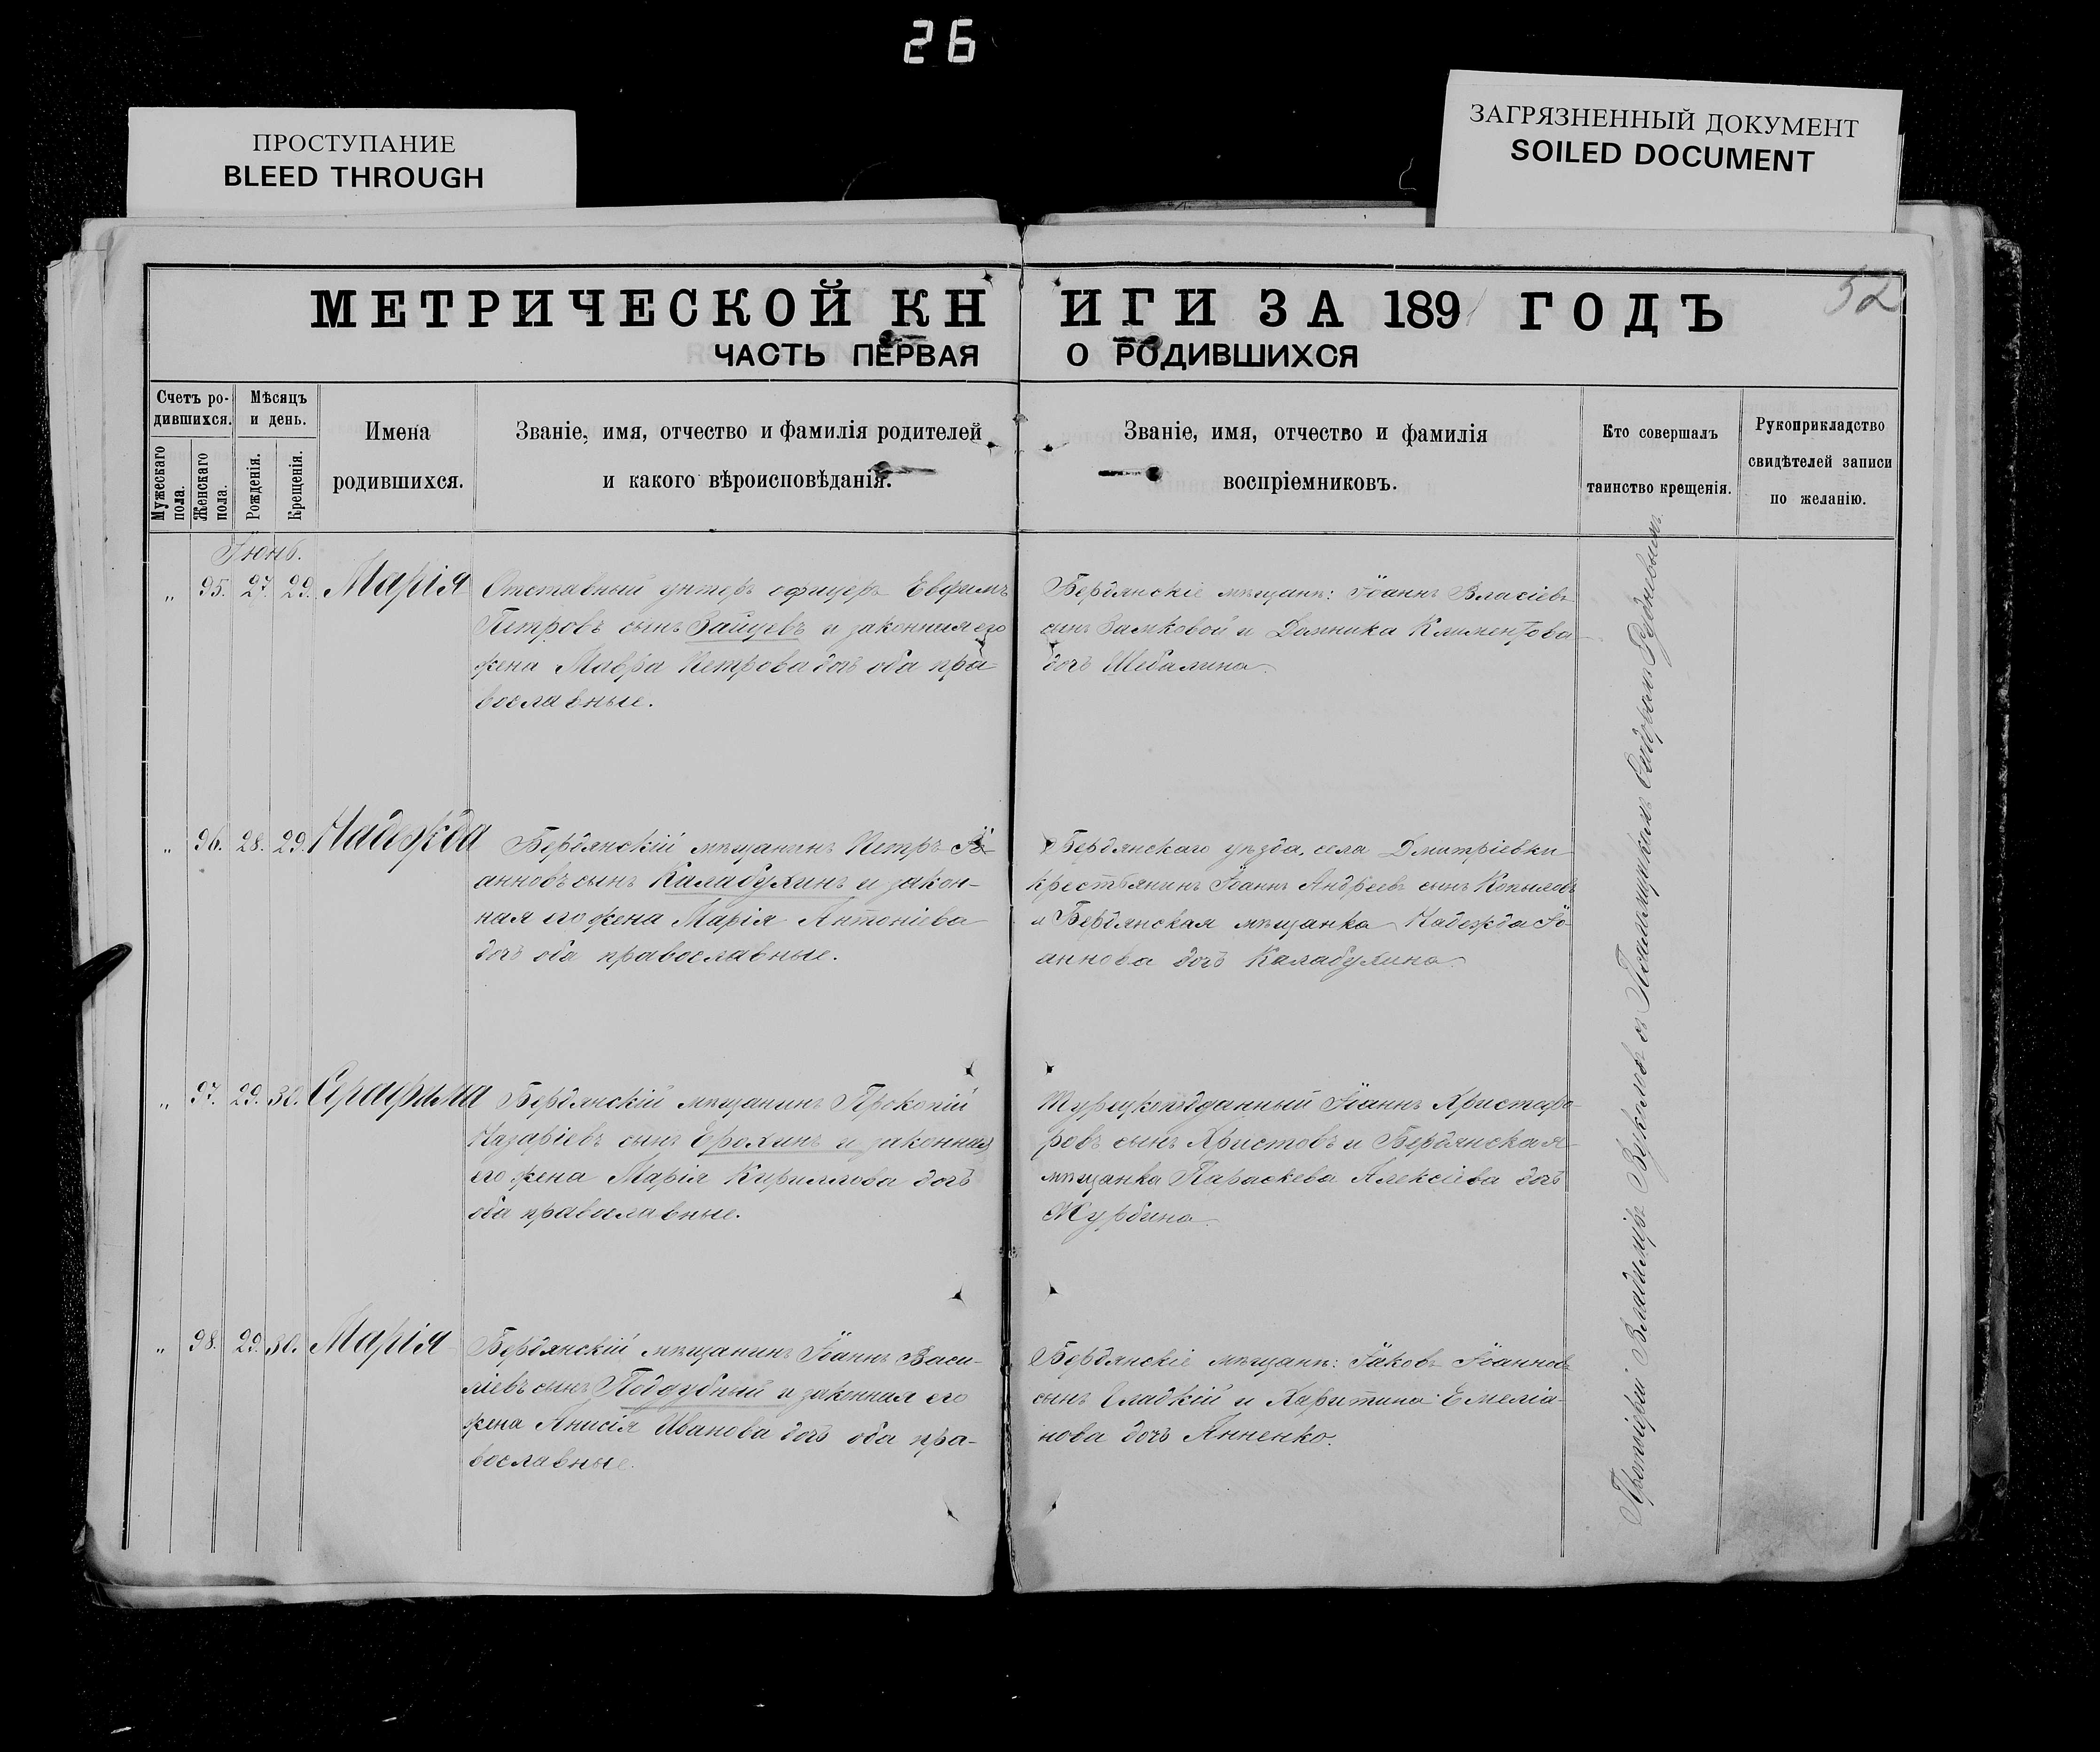 26
ПРОСТУПАНИЕ
BLEED THROUGH
ЗАГРЯЗНЕННЫЙ ДОКУМЕНТ
SOILED DOCUMENT
52
МЕТРИЧЕСКОЙ КНИГИ ЗА 1891 ГОДЪ
ЧАСТЬ ПЕРВАЯ О РОДИВШИХСЯ
Счетъ ро-
дившихся.
Мужескаго пола.
Женскаго пола.
Мѣсяцъ
и день.
Рожденія.
Крещенія.
Имена
родившихся.
Званіе, имя, отчество и фамилія родителей
и какого вѣроисповѣданія.
Званіе, имя, отчество и фамилія
воспріемниковъ.
Кто совершалъ
таинство крещенія.
Рукоприкладство
свидѣтелей записи
по желанію.
Іюнь.
„ 95. 27. 29. Марія
Отставный унтеръ офицеръ Евфимъ
Петровъ сынъ Зайцевъ и законная его
жена Мавра Петрова дочь оба пра-
вославные.
Бердянскіе мѣщане: Іоаннъ Власіевъ
сынъ Замковой и Домника Климентова
дочь Шебалина.
„ 96. 28. 29. Надежда
Бердянскій мѣщанинъ Петръ Іо-
анновъ сынъ Калабухинъ и закон-
ная его жена Марія Антоніева
дочь оба православные.
Бердянскаго уѣзда, села Дмитріевки
крестьянинъ Іоаннъ Андреевъ сынъ Копыловъ
и Бердянская мѣщанка Надежда Іо-
аннова дочь Калабухина.
„ 97. 29. 30. Серафима
Бердянскій мѣщанинъ Прокопій
Назаріевъ сынъ Ерохинъ и законная
его жена Марія Кириллова дочь
оба православные.
Турецкоподданный Іоаннъ Христофо-
ровъ сынъ Христовъ и Бердянская
мѣщанка Параскева Алексіева дочь
Журбина.
„ 98. 29. 30. Марія
Бердянскій мѣщанинъ Іоаннъ Васи-
ліевъ сынъ Поддубный и законная его
жена Анисія Иванова дочь оба пра-
вославные.
Бердянскіе мѣщане: Іаковъ Іоанновъ
сынъ Сладкій и Харитина Емеліа-
нова дочь Анненко.
Протоіерей Владиміръ Вуколовъ съ Псаломщикомъ Ѳедоромъ